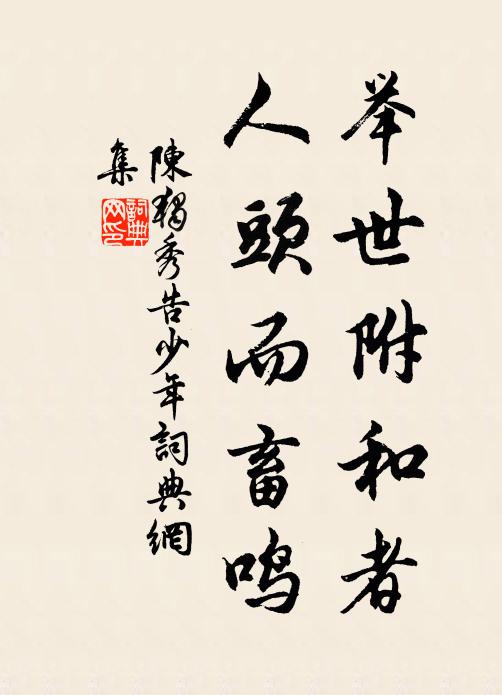 举世附和者
人頭而畜鸣
陳獨秀告少年詞典網
集
詞典网印